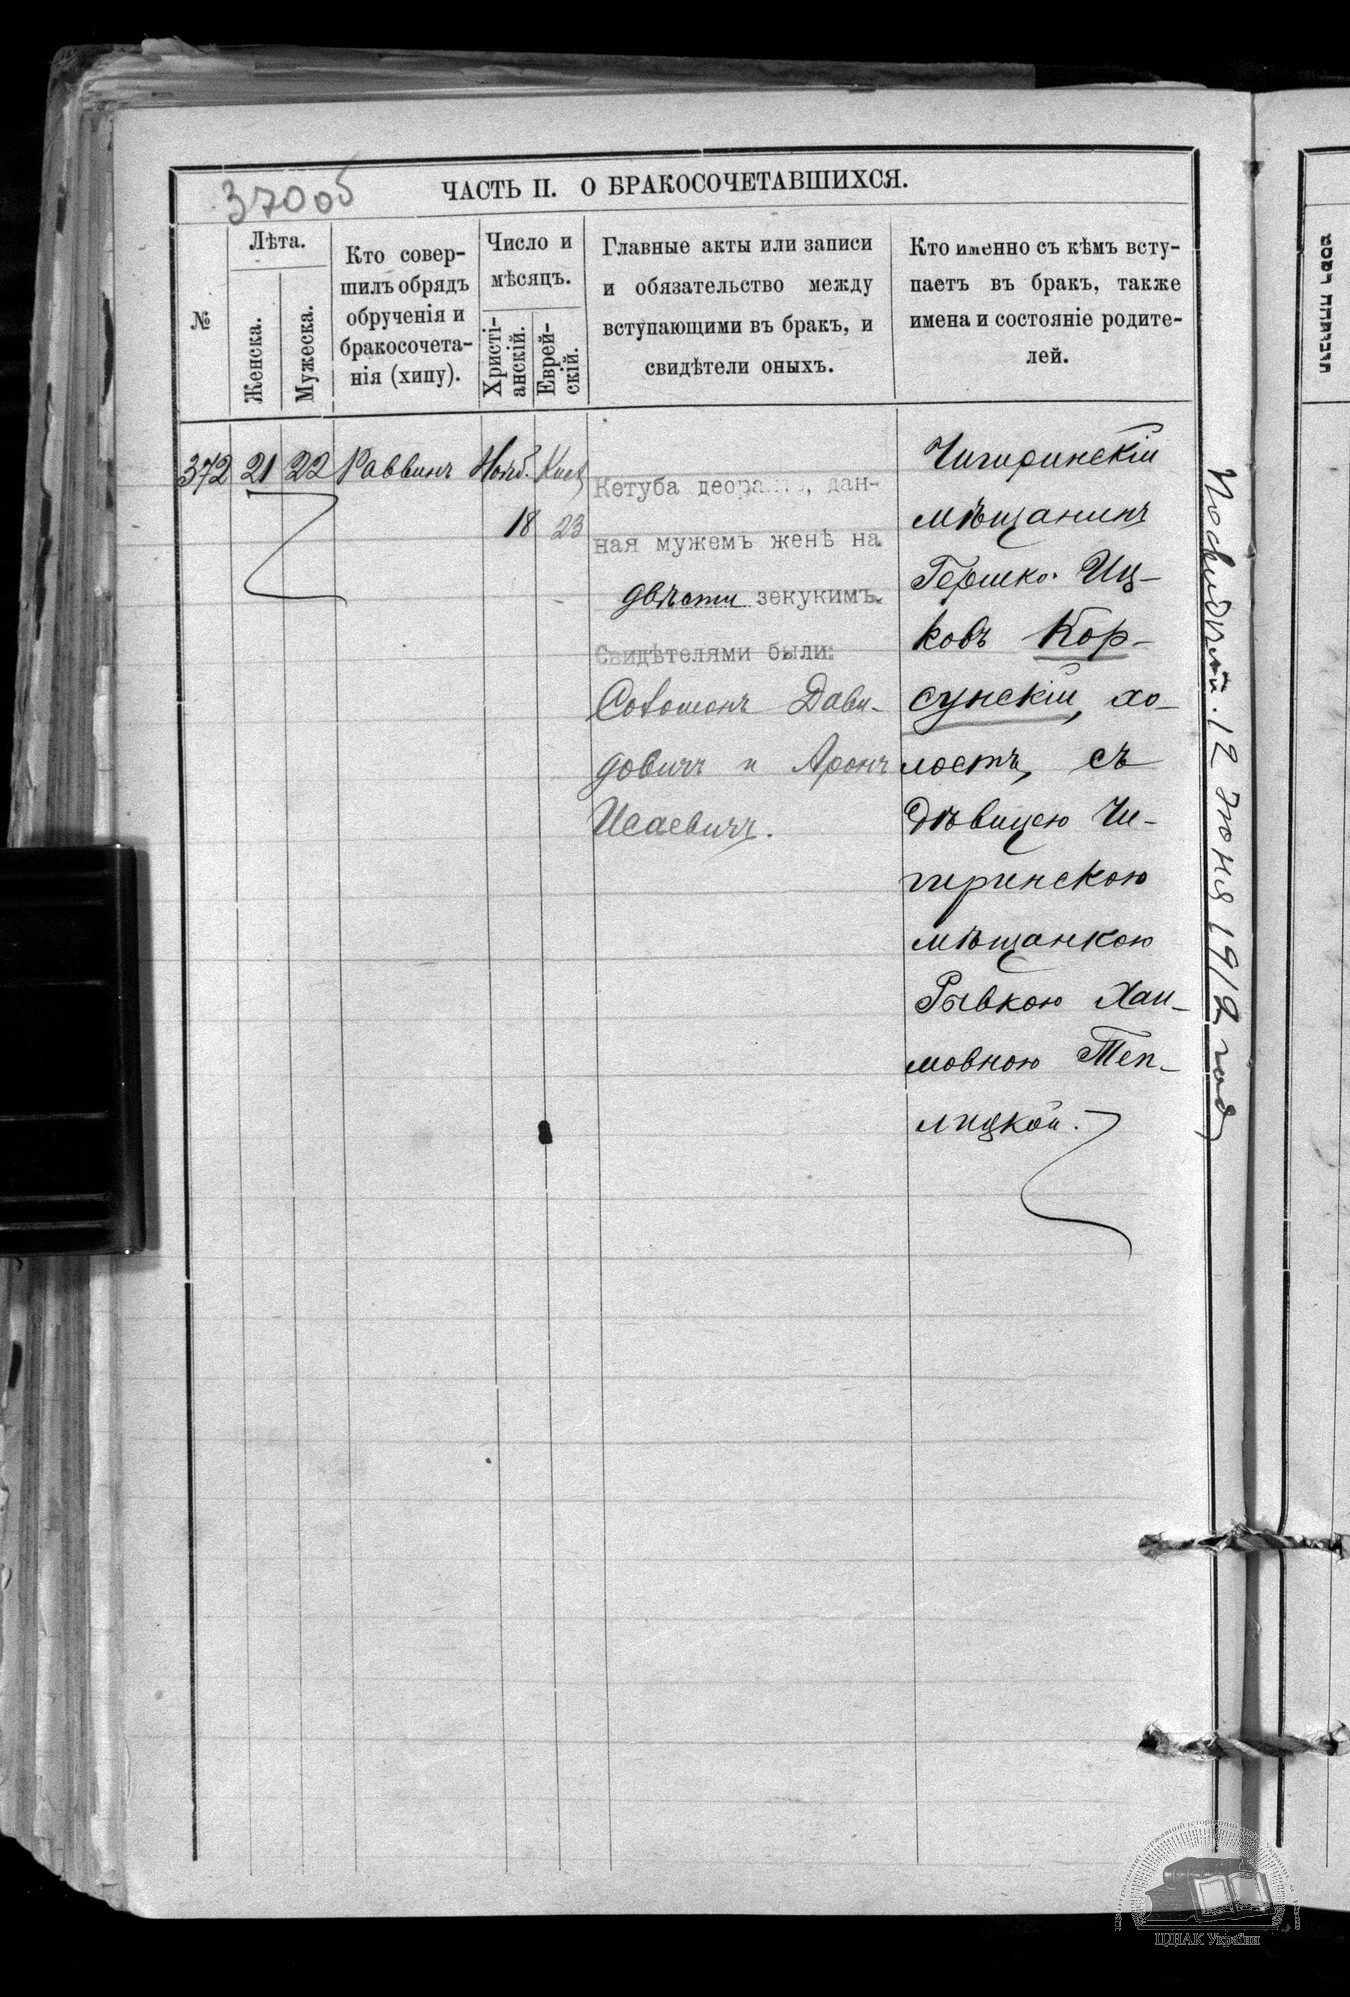 370 об
ЧАСТЬ II. О БРАКОСОЧЕТАВШИХСЯ.
№
Лѣта.
Женска.
Мужеска.
Кто совер-
шилъ обрядъ
обрученія и
бракосочета-
нія (хипу).
Число и
мѣсяцъ.
Христі-
анскій.
Еврей-
скій.
Главные акты или записи
и обязательство между
вступающими въ бракъ, и
свидѣтели оныхъ.
Кто именно съ кѣмъ всту-
паетъ въ бракъ, также
имена и состояніе родите-
лей.
372 21 22 Раввинъ Нояб. Кисл
18 23
Кетуба деорайта, дан-
ная мужемъ женѣ на
двѣсти зекукимъ.
Свидѣтелями были:
Соломонъ Дави-
довичъ и Аронъ
Исаевичъ.
Чигиринскій
мѣщанинъ
Гершко Иц-
ковъ Кор-
сунскій, хо-
лостъ, съ
дѣвицею Чи-
гиринскою
мѣщанкою
Рывкою Хаи-
мовною Теп-
лицкой.
12 Июня 1912 года
ЦДІАК України